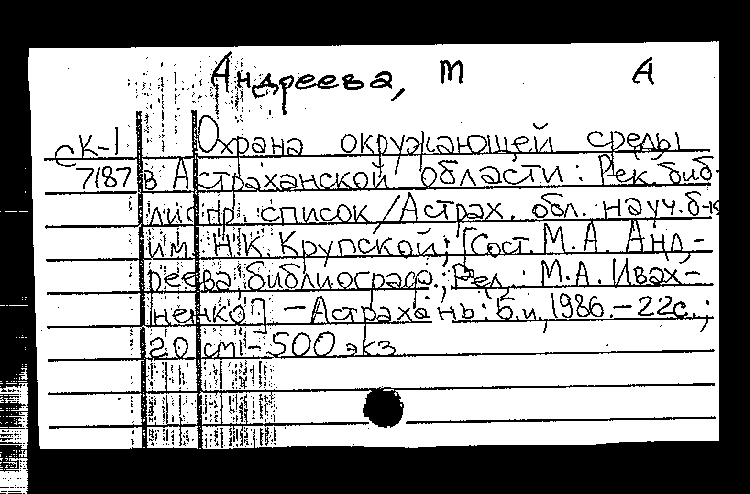 Андреева, М А
СК-1 Охрана окружающей среды
7187 в Астраханской области: Рек. биб-
лиогр. список / Астрах. обл. науч. б-ка
им. Н.К. Крупской; [Сост. М.А. Анд-
реева, библиограф.; Ред.: М.А. Ивах-
ненко]. - Астрахань: б.и., 1986. - 22с.;
20 см - 500 экз